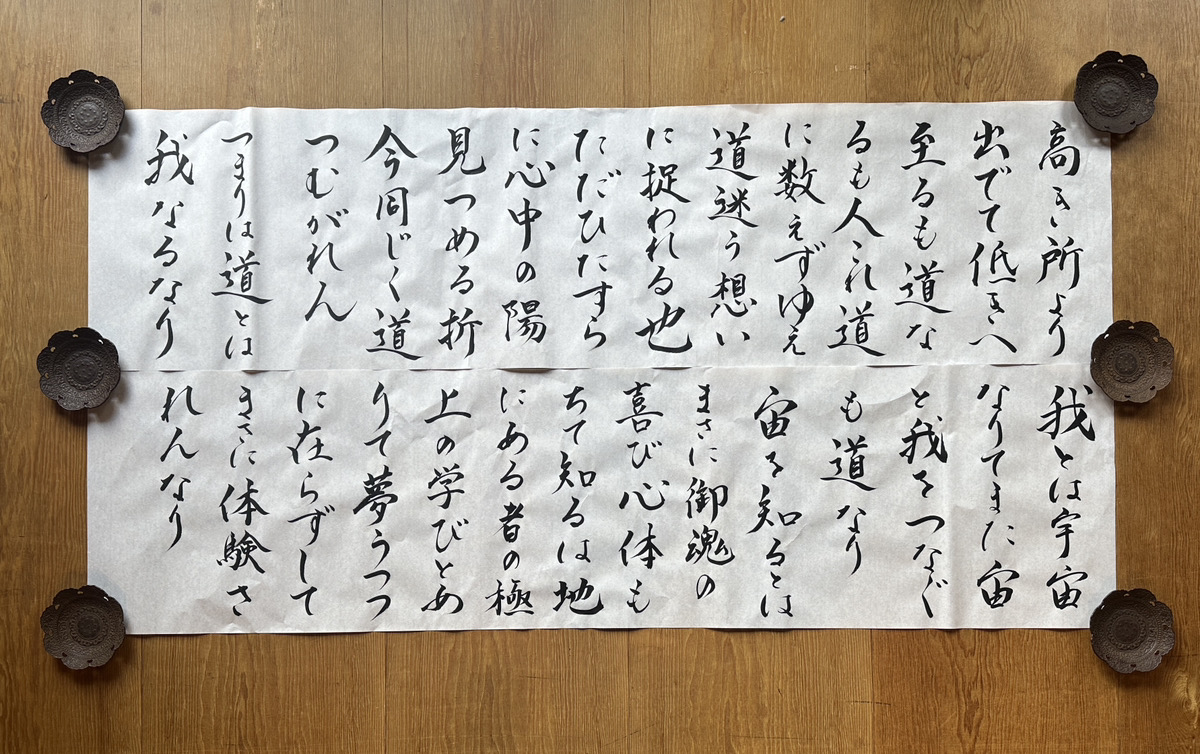 高き所より
出でて低きへ
至るも道な
るも人これ道
に数えずゆえ
道迷う想い
に捉われる也
ただひたすら
に心中の陽
見つめる折
今同じく道
つむがれん
つまりは道とは
我なるなり
我とは宇宙
なりてまた宙
と我をつなぐ
も道なり
宙を知るとは
まさに御魂の
喜び心体も
ちて知るは地
にある者の極
上の学びとあ
りて夢うつつ
に在らずして
まさに体験さ
れんなり